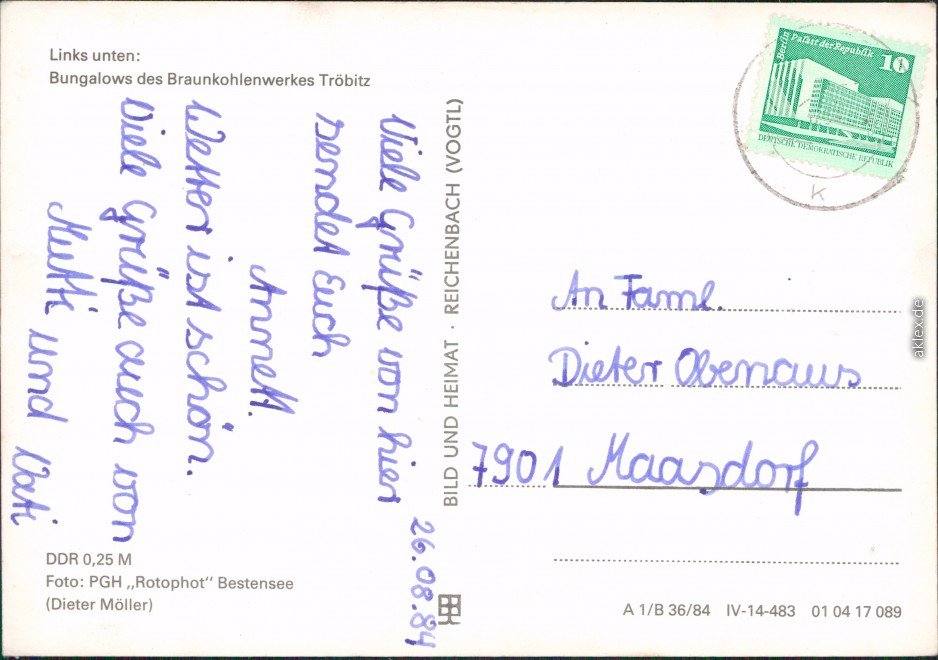 Links unten:
Bungalows des Braunkohlenwerkes Tröbitz
26.08.84
Viele Grüße von hier
sendet Euch
Annett.
Wetter ist schön.
Viele Grüße auch von
Mutti und Vati
DDR 0,25 M
Foto: PGH „Rotophot" Bestensee
(Dieter Möller)
BILD UND HEIMAT · REICHENBACH (VOGTL)
Berlin Palast der Republik
10
DEUTSCHE DEMOKRATISCHE REPUBLIK
K
An Faml.
Dieter Obenaus
7901 Maasdorf
A 1/B 36/84 IV-14-483 01 04 17 089
aklex.de